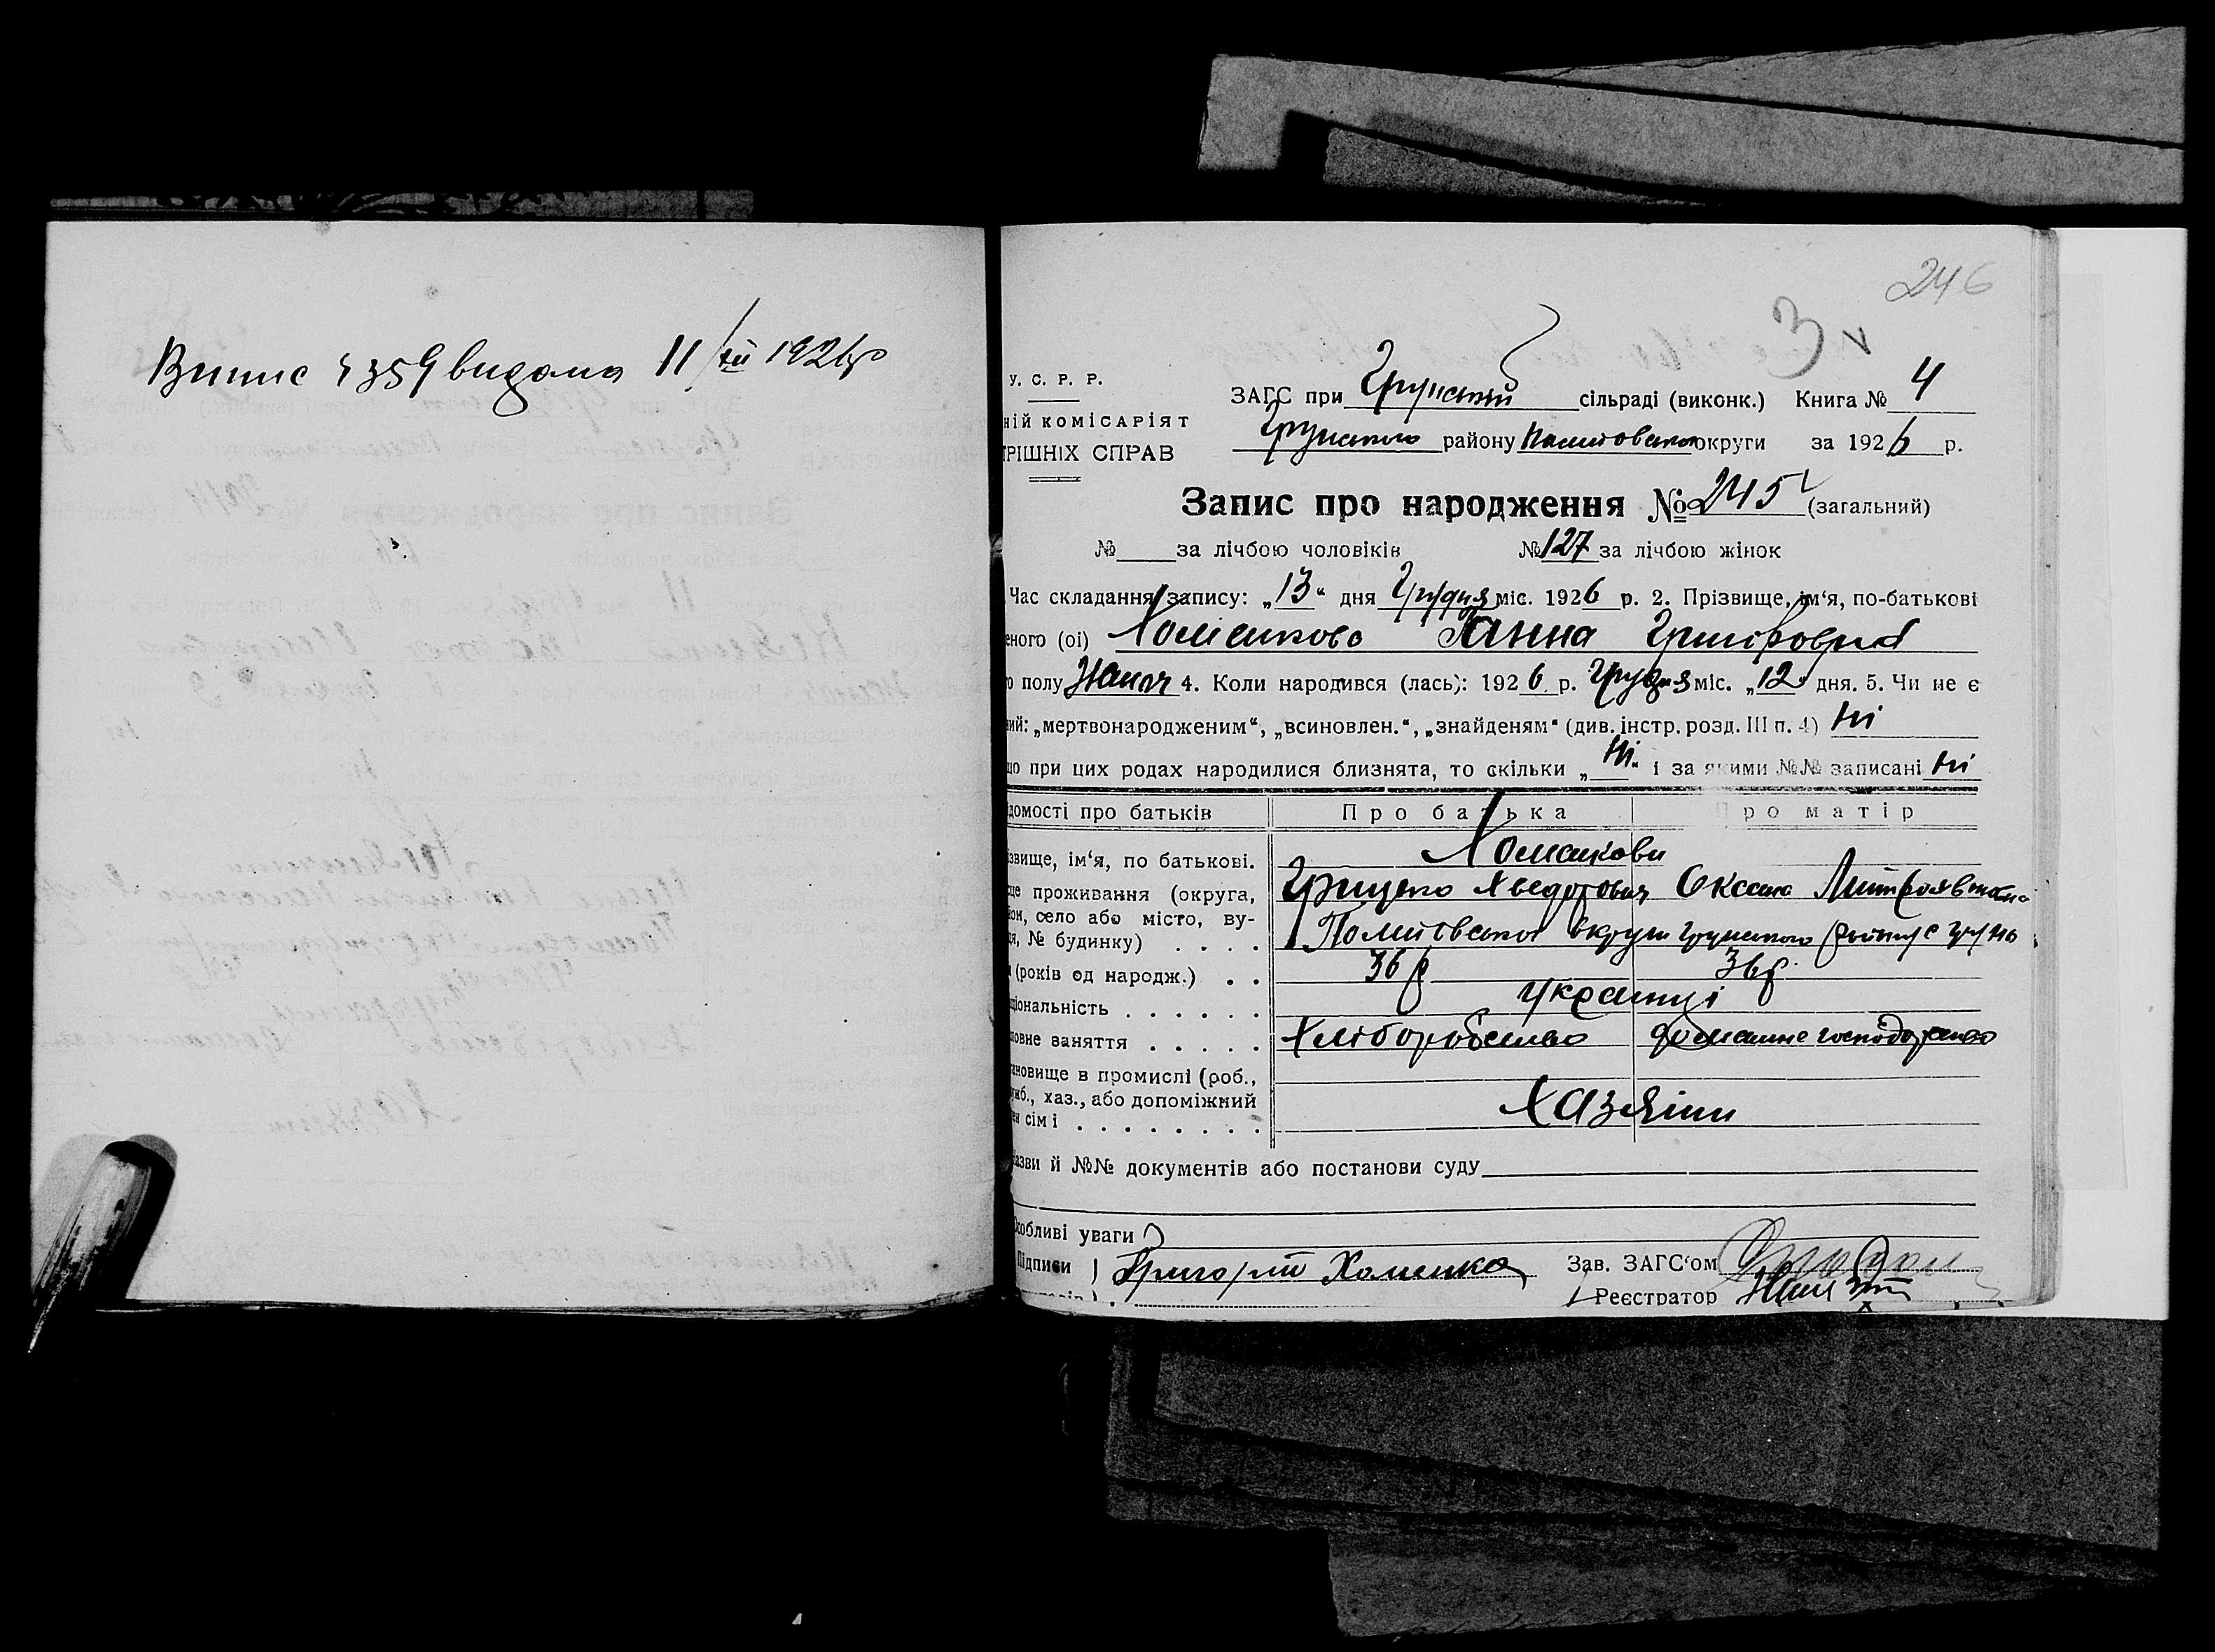 Випис № 359 видано 11/XII 1926 р
246
3 v
У. С. Р. Р.
ЗАГС при Грунській сільраді (виконк.) Книга № 4
ній КОМІСАРІЯТ
Грунського району Полтовської округи за 1926 р.
ТРІШНІХ СПРАВ
Запис про народження № 245 (загальний)
№ за лічбою чоловіків № 127 за лічбою жінок
Час складання запису: „13“ дня Грудня міс. 1926 р. 2. Прізвище, ім‘я, по-батькові
еного (ої) Хоменкова Ганна Григоровна
о полу Жіноч 4. Коли народився (лась): 1926 р. Грудня міс. „12“ дня. 5. Чи не є
ний: „мертвонародженим“, „всиновлен.“, „знайденям“ (див. інстр. розд. III п. 4) Ні
що при цих родах народилися близнята, то скільки „Ні“ і за якими №№ записані Ні
домості про батьків Про батька Про матір
Хоменкови
ізвище, ім‘я, по батькові.
це проживання (округа, Грицько Хведорович Оксана
он, село або місто, ву-
я, № будинку) . . . . округи Грунського району с Грунь
(років од народж.) . . 36 р 36 р.
ціональність . . . . . . Українці
овне заняття . . . . . Хліборобство домашнє господарство
ановище в промислі (роб.,
жб., хаз., або допоміжний Хазяїни
ен сімі . . . . . . . .
азви й №№ документів або постанови суду
Особливі уваги
Підписи Григорій Хоменко Зав. ЗАГС‘ом
Реєстратор